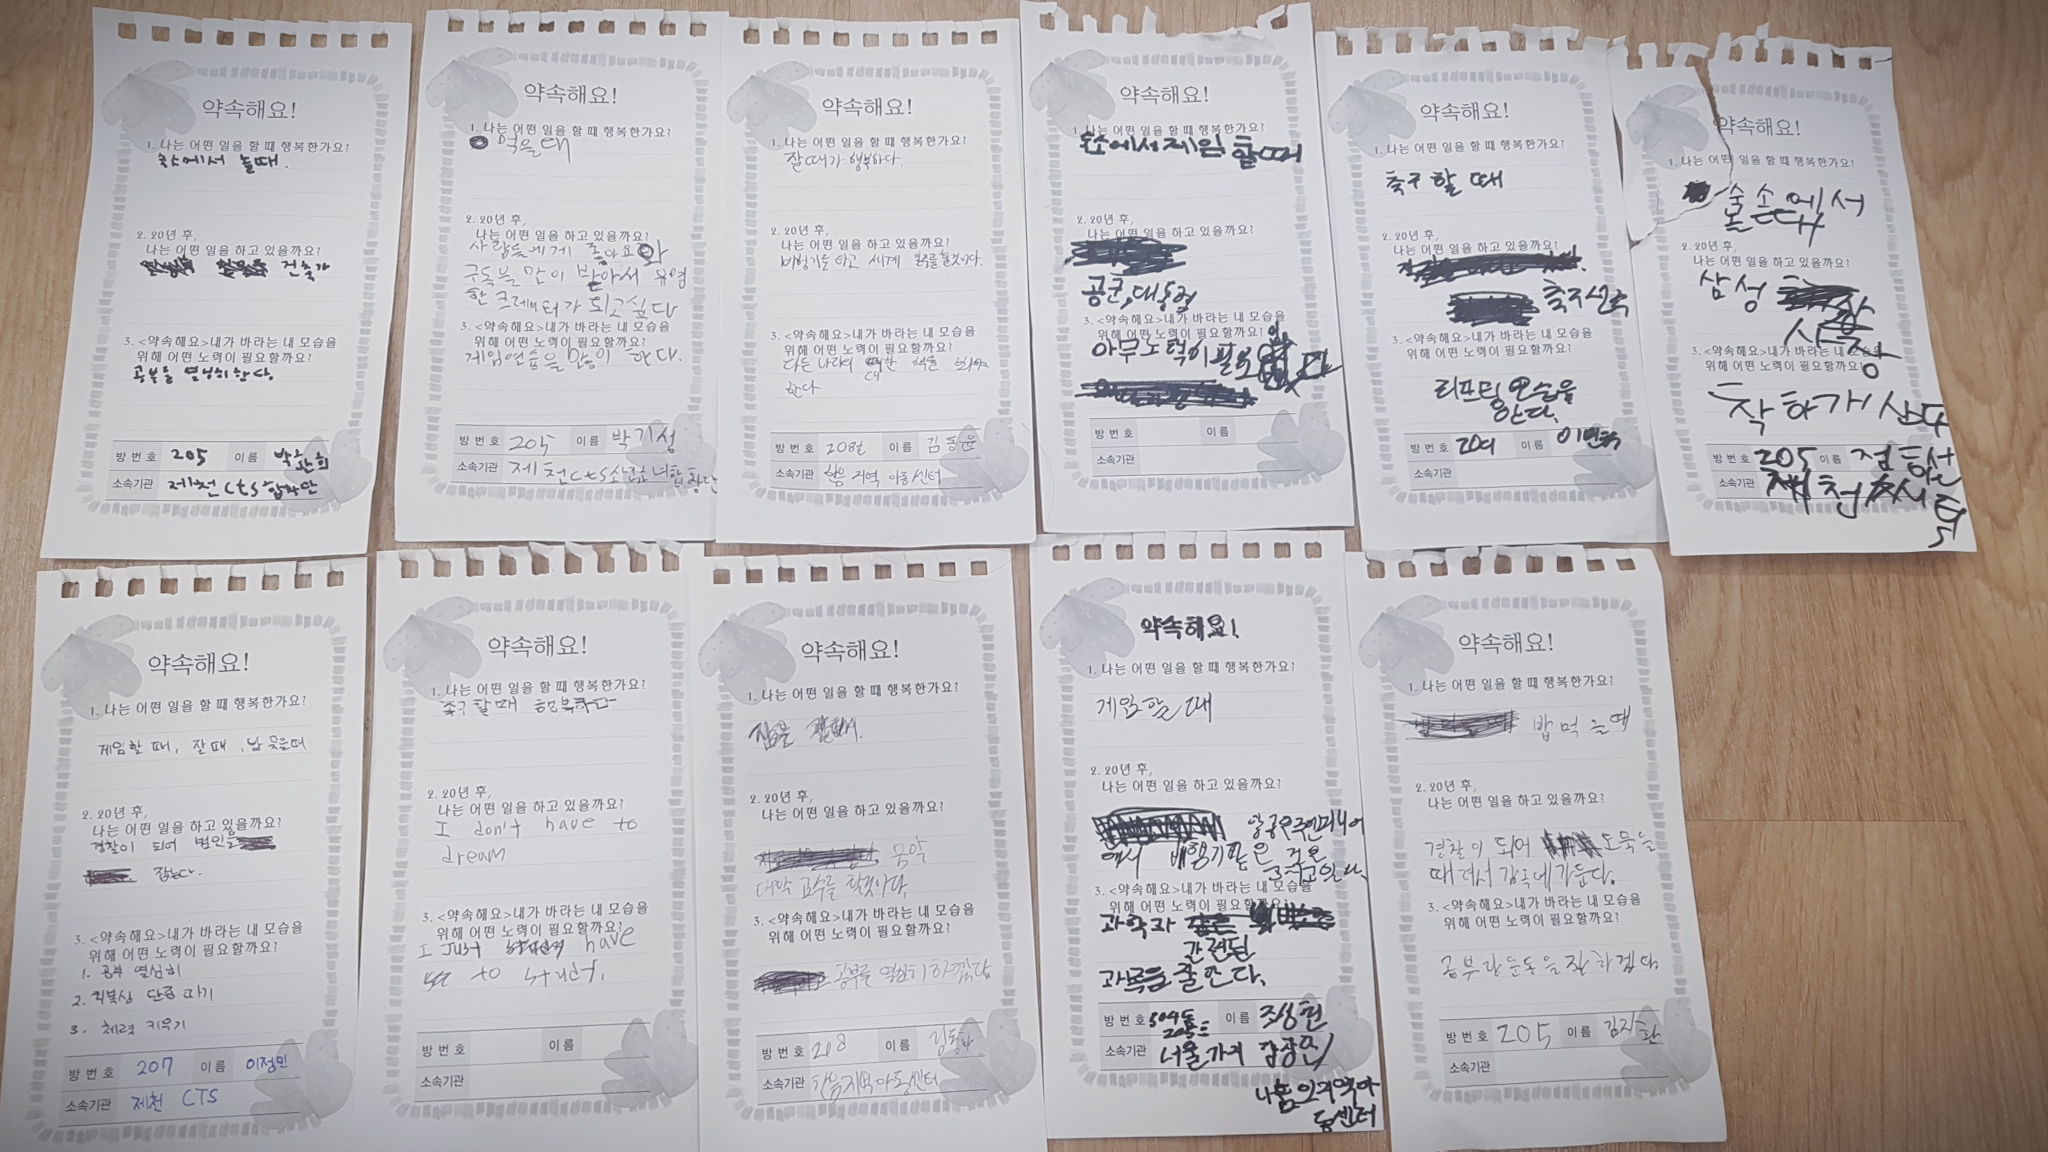 약속해요!
1. 나는 어떤 일을 할 때 행복한가요?
숙소에서 놀때.
2. 20년 후,
나는 어떤 일을 하고 있을까요?
건축가
3. <약속해요>내가 바라는 내 모습을
위해 어떤 노력이 필요할까요?
공부를 열심히한다.
방 번호 205 이름
소속기관 제천cts합창단
약속해요!
1. 나는 어떤 일을 할 때 행복한가요?
먹을때
2. 20년 후,
나는 어떤 일을 하고 있을까요?
사람들에게 좋아요와
구독을 많이 받아서 유명
한 크레 터가 되고싶다
3. <약속해요>내가 바라는 내 모습을
위해 어떤 노력이 필요할까요?
게임연습을 많이 한다.
방 번호 205 이름 박기성
소속기관 제천cts소년소녀합창단
약속해요!
1. 나는 어떤 일을 할 때 행복한가요?
잘때가 행복하다.
2. 20년 후,
나는 어떤 일을 하고 있을까요?
비행기를 타고 세계 일주를 할것이다.
3. <약속해요>내가 바라는 내 모습을
위해 어떤 노력이 필요할까요?
다른 나라에 대한 책을
한다
방 번호 208호 이름 김동윤
소속기관 지역 아동센터
약속해요!
1. 나는 어떤 일을 할 때 행복한가요?
숙소에서게임 할때
2. 20년 후,
나는 어떤 일을 하고 있을까요?
공군,대통령
3. <약속해요>내가 바라는 내 모습을
위해 어떤 노력이 필요할까요?
아무노력이필요없다
방 번호 이름
소속기관
약속해요!
1. 나는 어떤 일을 할 때 행복한가요?
축구 할 때
2. 20년 후,
나는 어떤 일을 하고 있을까요?
축구선수
3. <약속해요>내가 바라는 내 모습을
위해 어떤 노력이 필요할까요?
리프팅 연습을
한다.
방 번호 이름
소속기관
약속해요!
1. 나는 어떤 일을 할 때 행복한가요?
숙소에서
2. 20년 후,
나는 어떤 일을 하고 있을까요?
삼성
3. <약속해요>내가 바라는 내 모습을
위해 어떤 노력이 필요할까요?
착하게 산다
방 번호 205 이름
소속기관
약속해요!
1. 나는 어떤 일을 할 때 행복한가요?
게임할 때, 잘때,
2. 20년 후,
나는 어떤 일을 하고 있을까요?
경찰이 되어 범인을
잡는다.
3. <약속해요>내가 바라는 내 모습을
위해 어떤 노력이 필요할까요?
1. 공부 열심히
2. 직복싱 단증 따기
3. 체력 키우기
방 번호 207 이름 이정민
소속기관 제천 CTS
약속해요!
1. 나는 어떤 일을 할 때 행복한가요?
축구할때 행복하다
2. 20년 후,
나는 어떤 일을 하고 있을까요?
I don't have to
dream
3. <약속해요>내가 바라는 내 모습을
위해 어떤 노력이 필요할까요?
I Just have
to
방 번호 이름
소속기관
약속해요!
1. 나는 어떤 일을 할 때 행복한가요?
2. 20년 후,
나는 어떤 일을 하고 있을까요?
음악
대학 교수를 할것이다.
3. <약속해요>내가 바라는 내 모습을
위해 어떤 노력이 필요할까요?
공부를 열심히하겠다
방 번호 218 이름
소속기관
약속해요!
1. 나는 어떤 일을 할 때 행복한가요?
게임할 때
2. 20년 후,
나는 어떤 일을 하고 있을까요?
3. <약속해요>내가 바라는 내 모습을
위해 어떤 노력이 필요할까요?
과학과
관련된
과목을 잘한다.
방 번호 이름 조성현
소속기관
약속해요!
1. 나는 어떤 일을 할 때 행복한가요?
밥먹을때
2. 20년 후,
나는 어떤 일을 하고 있을까요?
경찰이 되어 도둑을
때려서 감옥에 가둔다.
3. <약속해요>내가 바라는 내 모습을
위해 어떤 노력이 필요할까요?
공부랑 운동을 잘 하겠다
방 번호 205 이름 김지환
소속기관